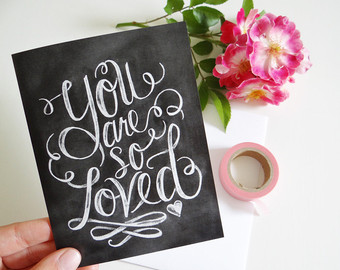 You
are
so
Loved